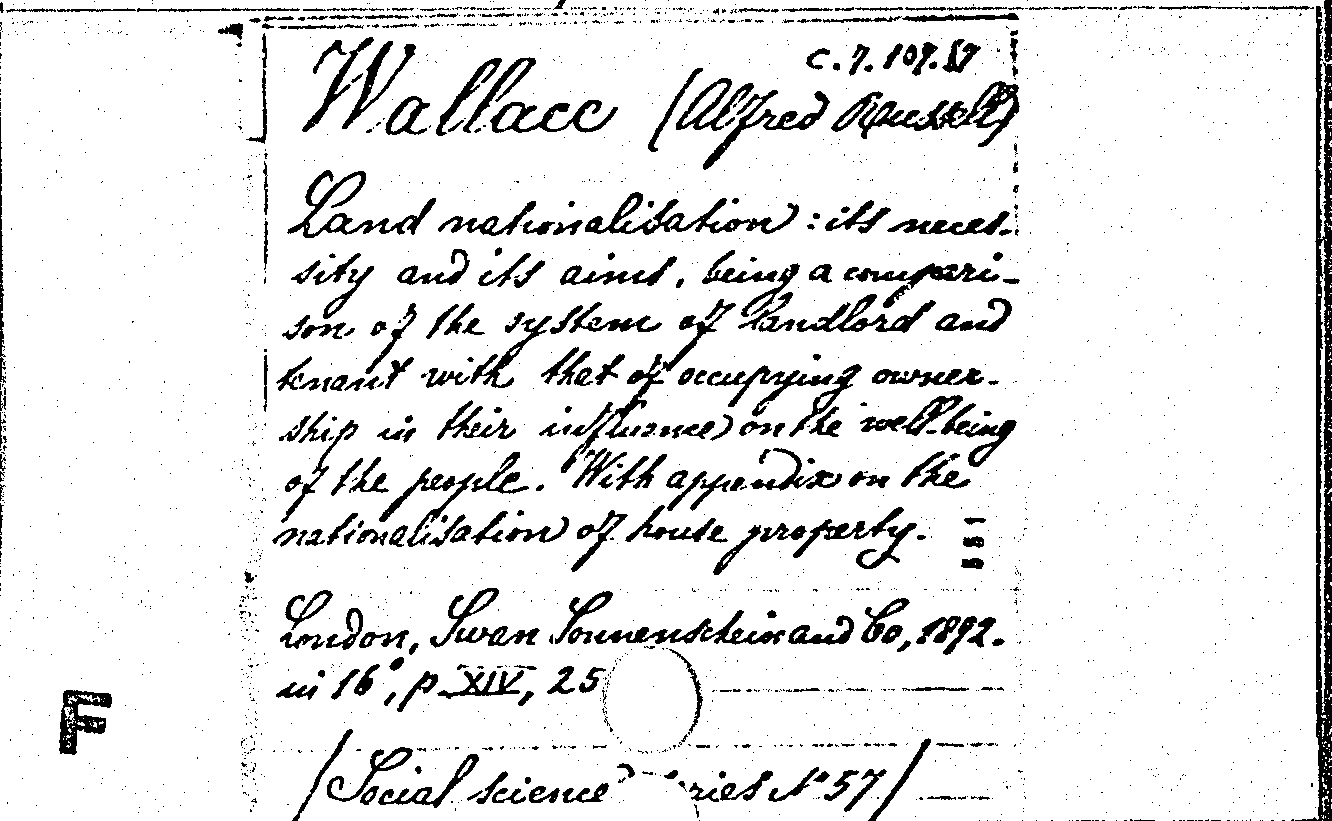 C.7.107.57
Wallace (Alfred Russell)
Land nationalisation : its neces-
sity and its aims, being a compari-
son of the system of landlord and
tenant with that of occupying owner-
ship in their influence on the well-being
of the people. With appendix on the
nationalisation of house property.
551
London, Swan Sonnenschein and Co, 1892.
in 16°, p. XIV, 25
F
(Social science ries N° 57)